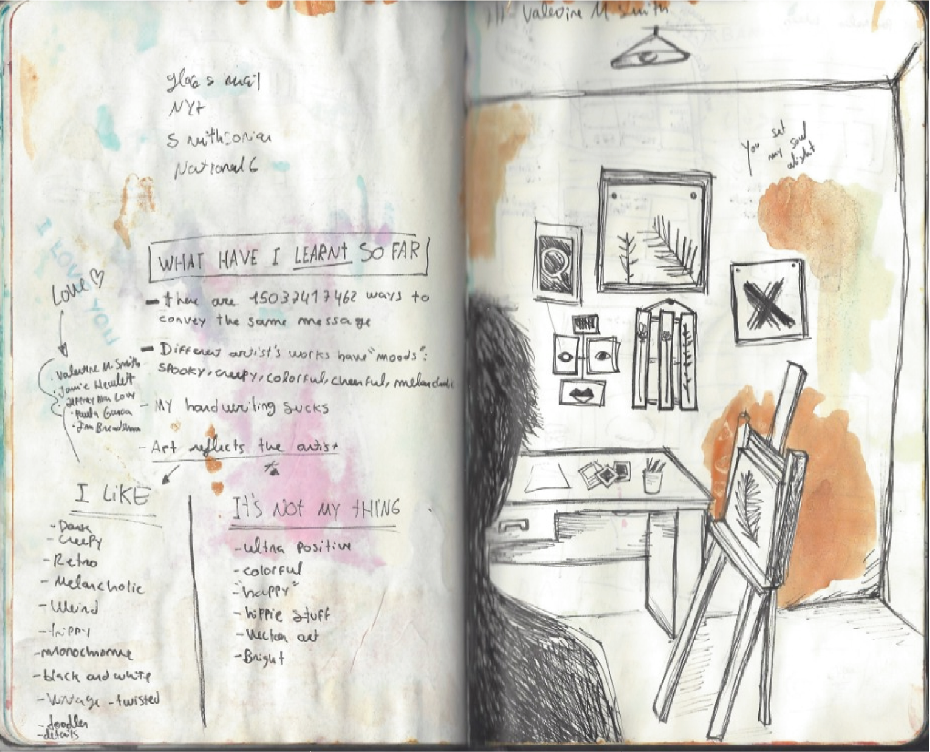 NYT
Smithsonian
National G
WHAT HAVE I LEARNT SO FAR
- there are 15037417462 ways to
convey the same message
- Different artist's works have "moods":
spooky, creepy, colorful, cheerful, melancholic
- My handwriting sucks
- Art reflects the artist
Love
I LOVE
YOU
Valentine M. Smith
Jamie Hewlett
I LIKE
- Dark
- Creepy
- Retro
- Melancholic
- Weird
- trippy
- monochrome
- black and white
- Vintage - twisted
- doodles
- details
IT'S NOT MY THING
- ultra positive
- colorful
- "happy"
- hippie stuff
- Vector art
- Bright
M. Smith
You set
my soul
alight